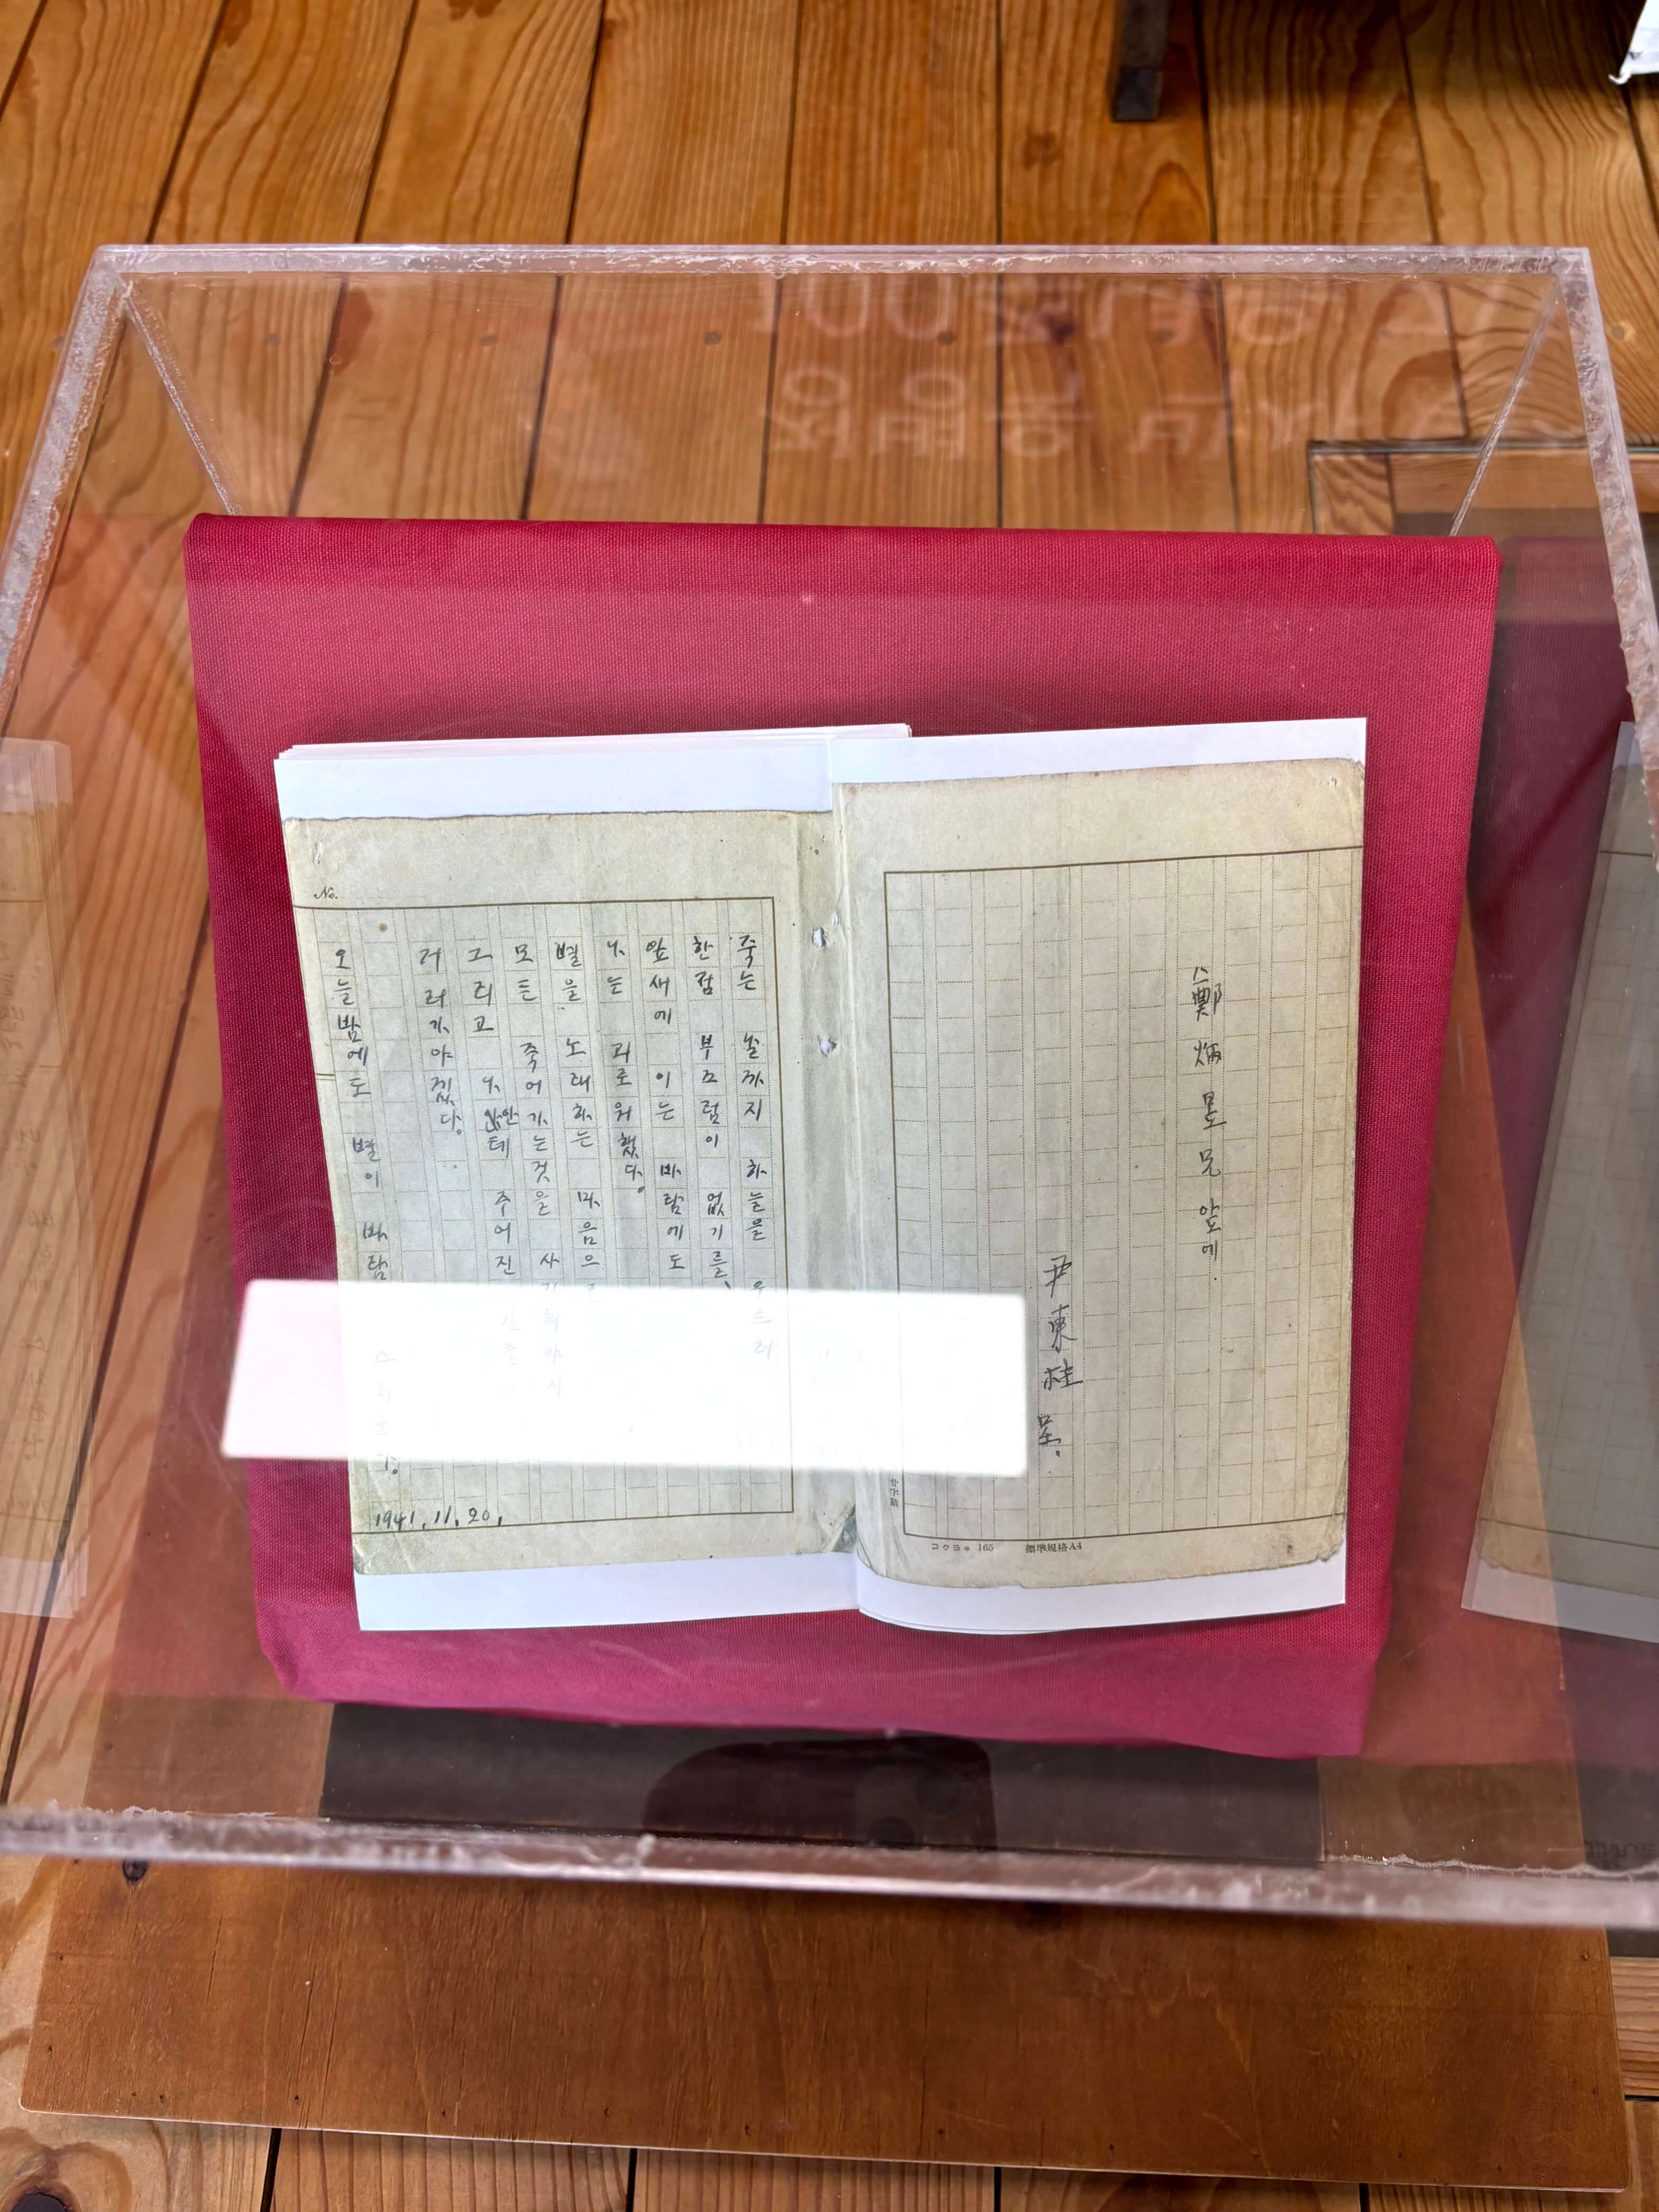 鄭炳昱兄 앞에
尹東柱 呈.
コクヨ 165 標準規格A4
No.
죽는 날까지 하늘을 우르러
한점 부끄럼이 없기를,
잎새에 이는 바람에도
나는 괴로워했다.
별을 노래하는 마음으로
모든 죽어가는것을 사랑해야지
그리고 나안테 주어진 길을
거러가야겠다.
오늘밤에도 별이 바람 스치운다.
1941.11.20.